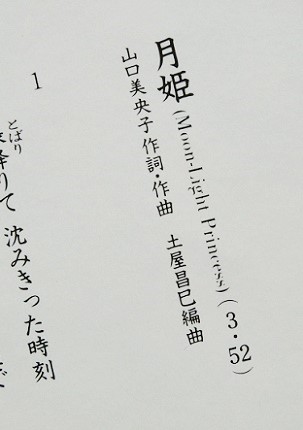 月姫(Moon-Light Princess)(3・52)
山口美央子作詞・作曲 土屋昌巳編曲
1
とばり
降りて 沈みきった時刻